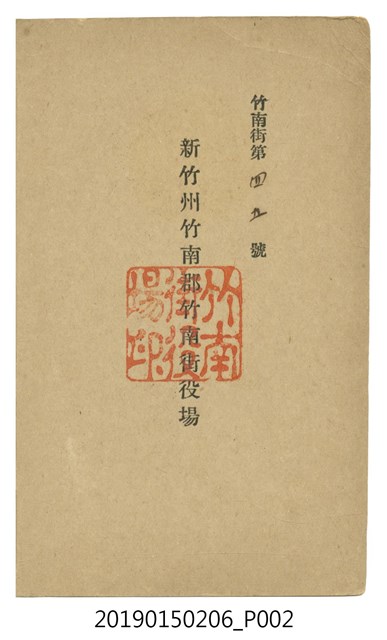 竹南街第四五號
新竹州竹南郡竹南街役場
竹南
街役
場印
20190150206_P002